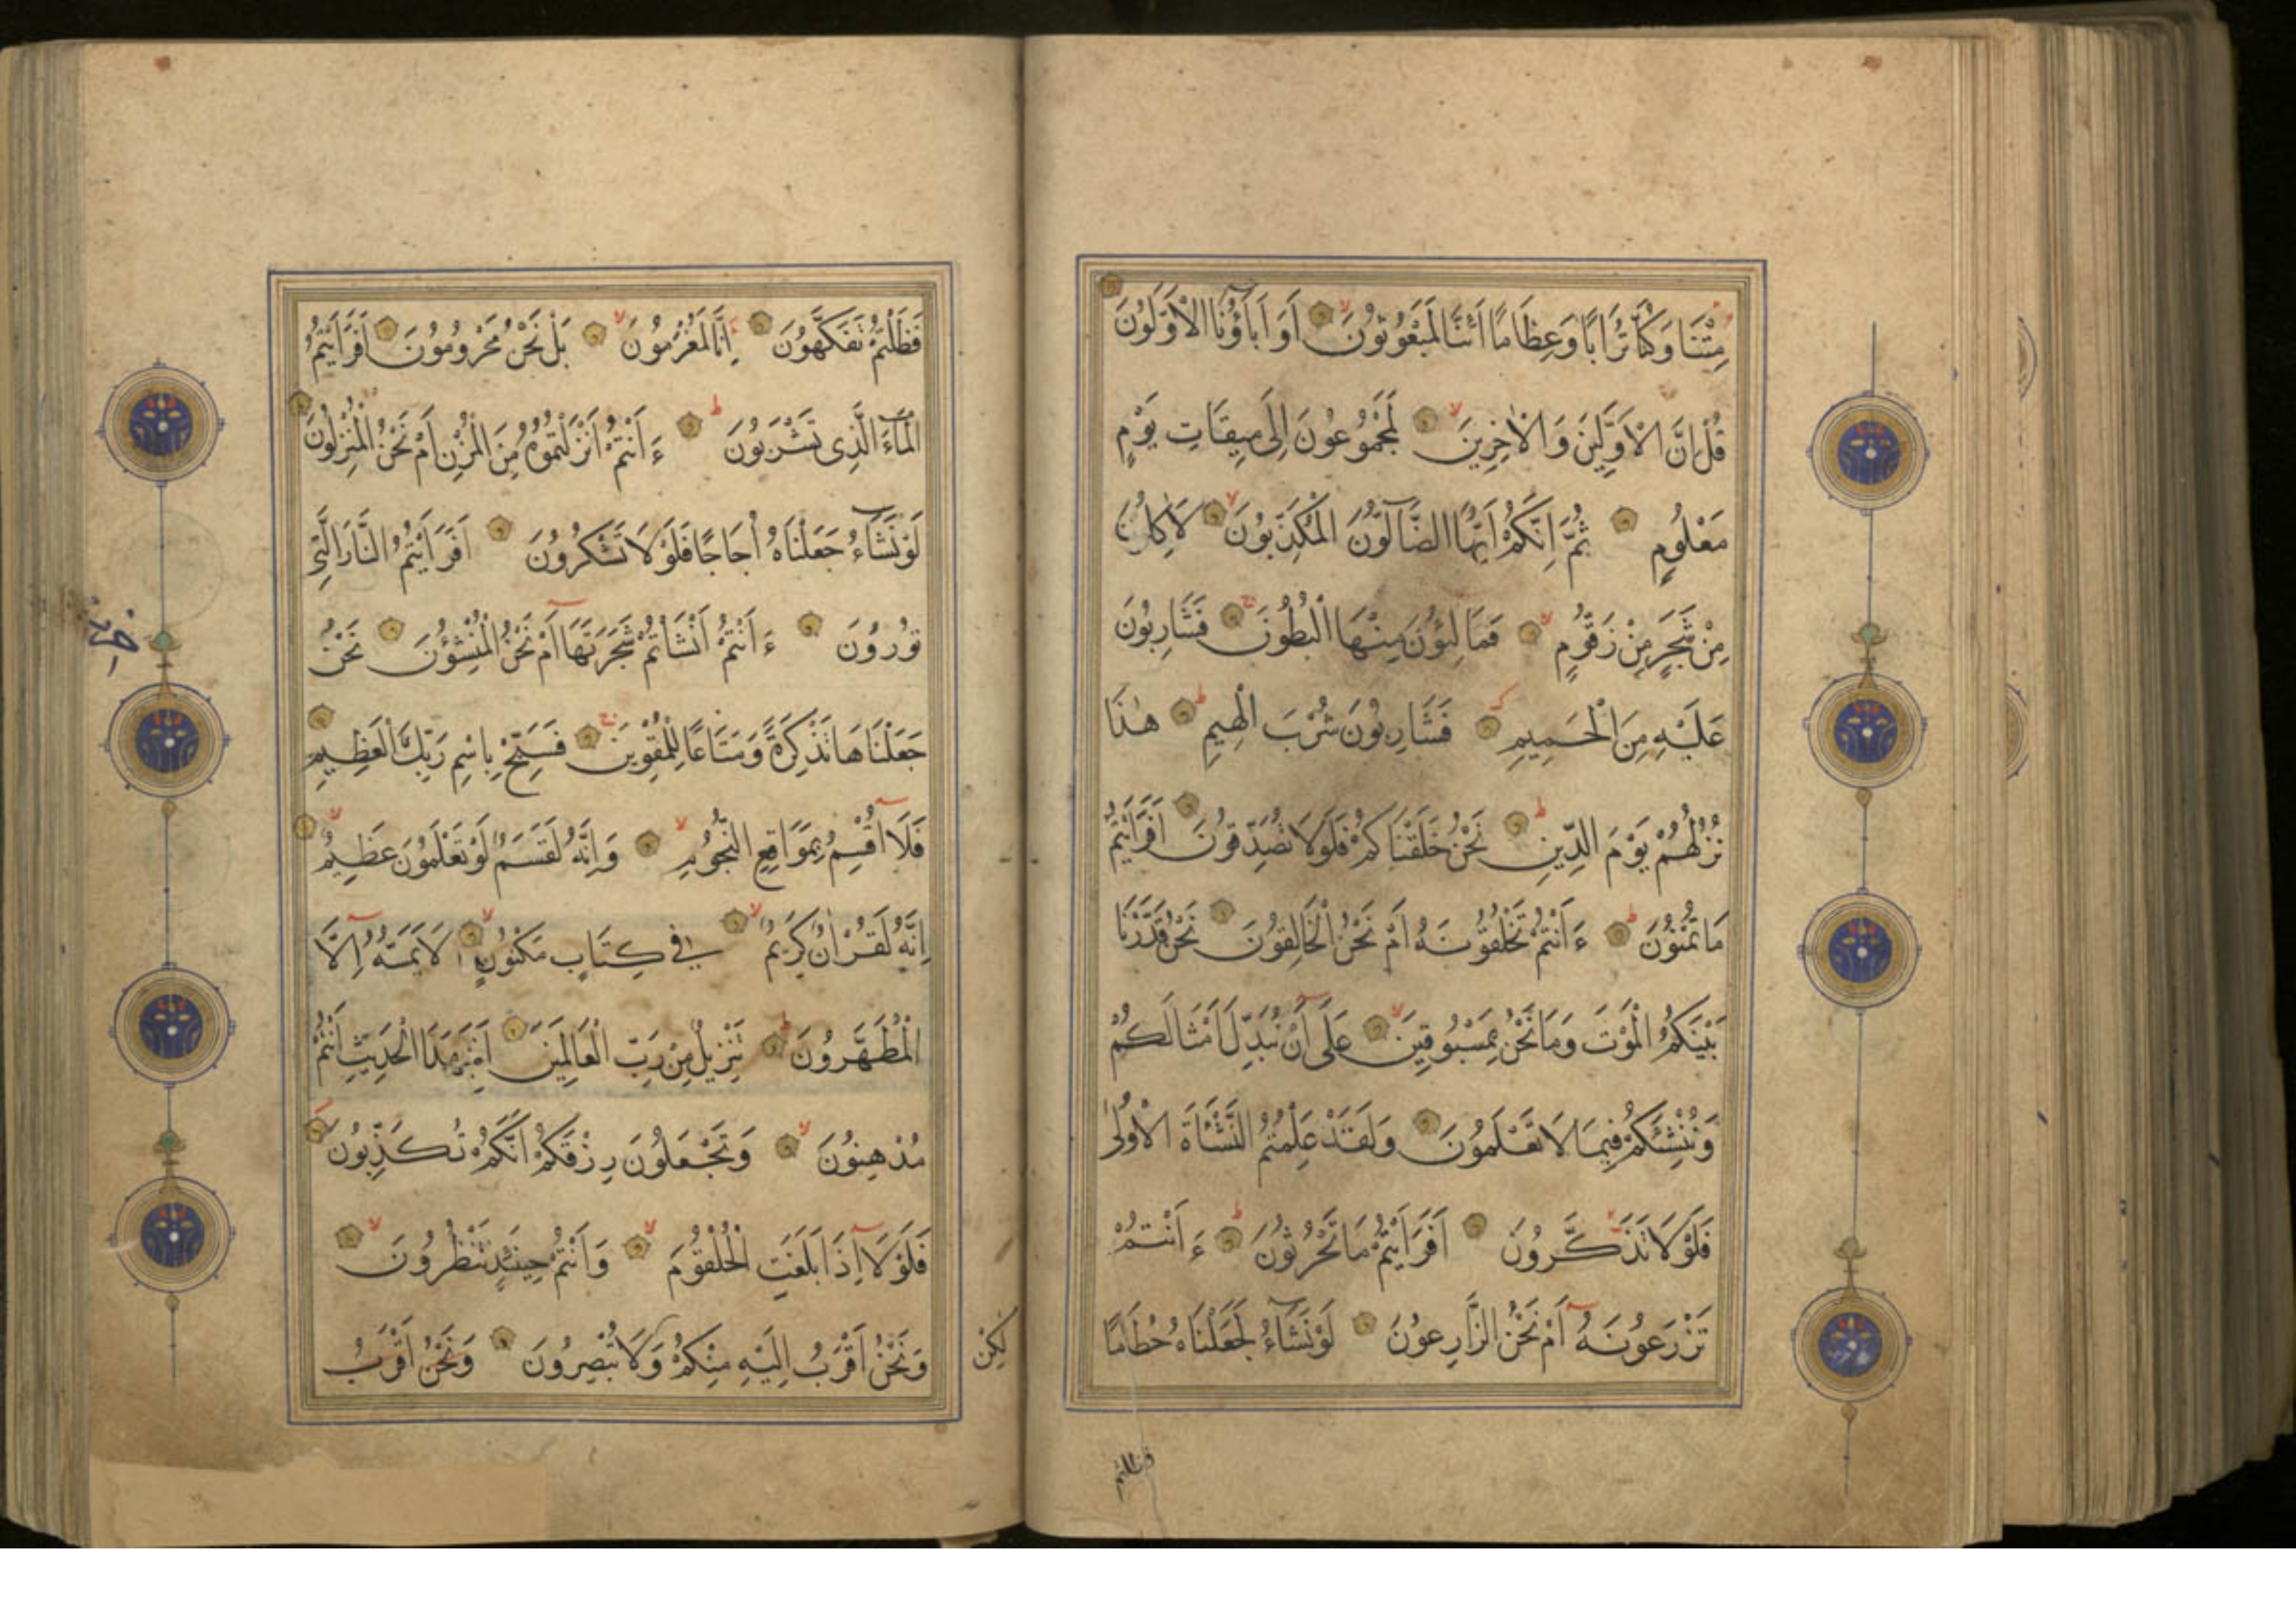 مِتْنَا وَكُنَّا تُرَابًا وَعِظَامًا أَئِنَّا لَمَبْعُوثُونَ أَوَ اٰبَاؤُنَا الْاَوَّلُونَ
قُلْ اِنَّ الْاَوَّلِينَ وَالْاٰخِرِينَ لَمَجْمُوعُونَ اِلَى مِيقَاتِ يَوْمٍ
مَعْلُومٍ ثُمَّ اِنَّكُمْ اَيُّهَا الضَّآلُّونَ الْمُكَذِّبُونَ لَاٰكِلُونَ
مِنْ شَجَرٍ مِنْ زَقُّومٍ فَمَالِئُونَ مِنْهَا الْبُطُونَ فَشَارِبُونَ
عَلَيْهِ مِنَ الْحَمِيمِ فَشَارِبُونَ شُرْبَ الْهِيمِ هٰذَا
نُزُلُهُمْ يَوْمَ الدِّينِ نَحْنُ خَلَقْنَاكُمْ فَلَوْلَا تُصَدِّقُونَ اَفَرَاَيْتُمْ
مَا تُمْنُونَ ءَاَنْتُمْ تَخْلُقُونَهُ اَمْ نَحْنُ الْخَالِقُونَ نَحْنُ قَدَّرْنَا
بَيْنَكُمُ الْمَوْتَ وَمَا نَحْنُ بِمَسْبُوقِينَ عَلَى اَنْ نُبَدِّلَ اَمْثَالَكُمْ
وَنُنْشِئَكُمْ فِيمَا لَا تَعْلَمُونَ وَلَقَدْ عَلِمْتُمُ النَّشْاَةَ الْاُولٰى
فَلَوْلَا تَذَكَّرُونَ اَفَرَاَيْتُمْ مَا تَحْرُثُونَ ءَاَنْتُمْ
تَزْرَعُونَهُ اَمْ نَحْنُ الزَّارِعُونَ لَوْ نَشَآءُ لَجَعَلْنَاهُ حُطَامًا
فظلتم
فَظَلْتُمْ تَفَكَّهُونَ اِنَّا لَمُغْرَمُونَ بَلْ نَحْنُ مَحْرُومُونَ اَفَرَاَيْتُمُ
الْمَآءَ الَّذِى تَشْرَبُونَ ءَاَنْتُمْ اَنْزَلْتُمُوهُ مِنَ الْمُزْنِ اَمْ نَحْنُ الْمُنْزِلُونَ
لَوْ نَشَآءُ جَعَلْنَاهُ اُجَاجًا فَلَوْلَا تَشْكُرُونَ اَفَرَاَيْتُمُ النَّارَ الَّتِى
تُورُونَ ءَاَنْتُمْ اَنْشَاْتُمْ شَجَرَتَهَا اَمْ نَحْنُ الْمُنْشِئُونَ نَحْنُ
جَعَلْنَاهَا تَذْكِرَةً وَمَتَاعًا لِلْمُقْوِينَ فَسَبِّحْ بِاسْمِ رَبِّكَ الْعَظِيمِ
فَلَا اُقْسِمُ بِمَوَاقِعِ النُّجُومِ وَاِنَّهُ لَقَسَمٌ لَوْ تَعْلَمُونَ عَظِيمٌ
اِنَّهُ لَقُرْاٰنٌ كَرِيمٌ فِى كِتَابٍ مَكْنُونٍ لَا يَمَسُّهُ اِلَّا
الْمُطَهَّرُونَ تَنْزِيلٌ مِنْ رَبِّ الْعَالَمِينَ اَفَبِهٰذَا الْحَدِيثِ اَنْتُمْ
مُدْهِنُونَ وَتَجْعَلُونَ رِزْقَكُمْ اَنَّكُمْ تُكَذِّبُونَ
فَلَوْلَا اِذَا بَلَغَتِ الْحُلْقُومَ وَاَنْتُمْ حِينَئِذٍ تَنْظُرُونَ
وَنَحْنُ اَقْرَبُ اِلَيْهِ مِنْكُمْ وَلَا تُبْصِرُونَ وَنَحْنُ اَقْرَبُ
لَكِنْ